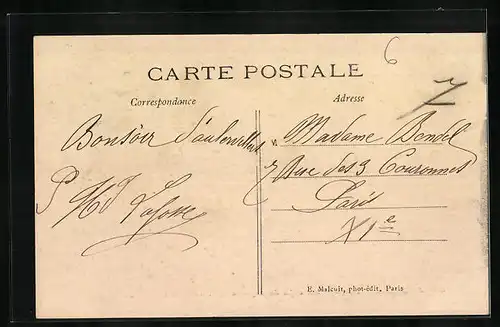 6
CARTE POSTALE
Correspondance
Adresse
7
Bonsoir d'Aubervilliers
Madame Bendel
7 Rue des 3 Couronnes
Paris
XIe
E. Malcuit, phot-édit, Paris